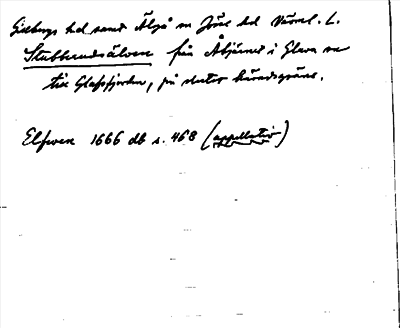 Gillbergs hd samt Älgå sn Jösse hd Värml. L.
Stubberudsälven från Åbjärns i Glava sn
till Glafsfjorden, på slutet häradsgräns.
Elfwen 1666 db s. 468 (appellativ)